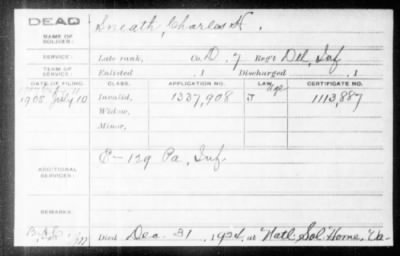 DEAD
NAME OF SOLDIER: Sneath, Charles H.
SERVICE: Late rank, Co. D. 7 Reg't Del. Inf
TERM OF SERVICE: Enlisted , 1 Discharged , 1
DATE OF FILING. CLASS. APPLICATION NO. LAW. CERTIFICATE NO.
1905 July 10 Invalid, 1337,908 J age 1113,887
Widow,
Minor,
ADDITIONAL SERVICES: E-129 Pa, Inf
REMARKS:
Died Dec. 31, 1924, at Nat'l Sol Home, Va-